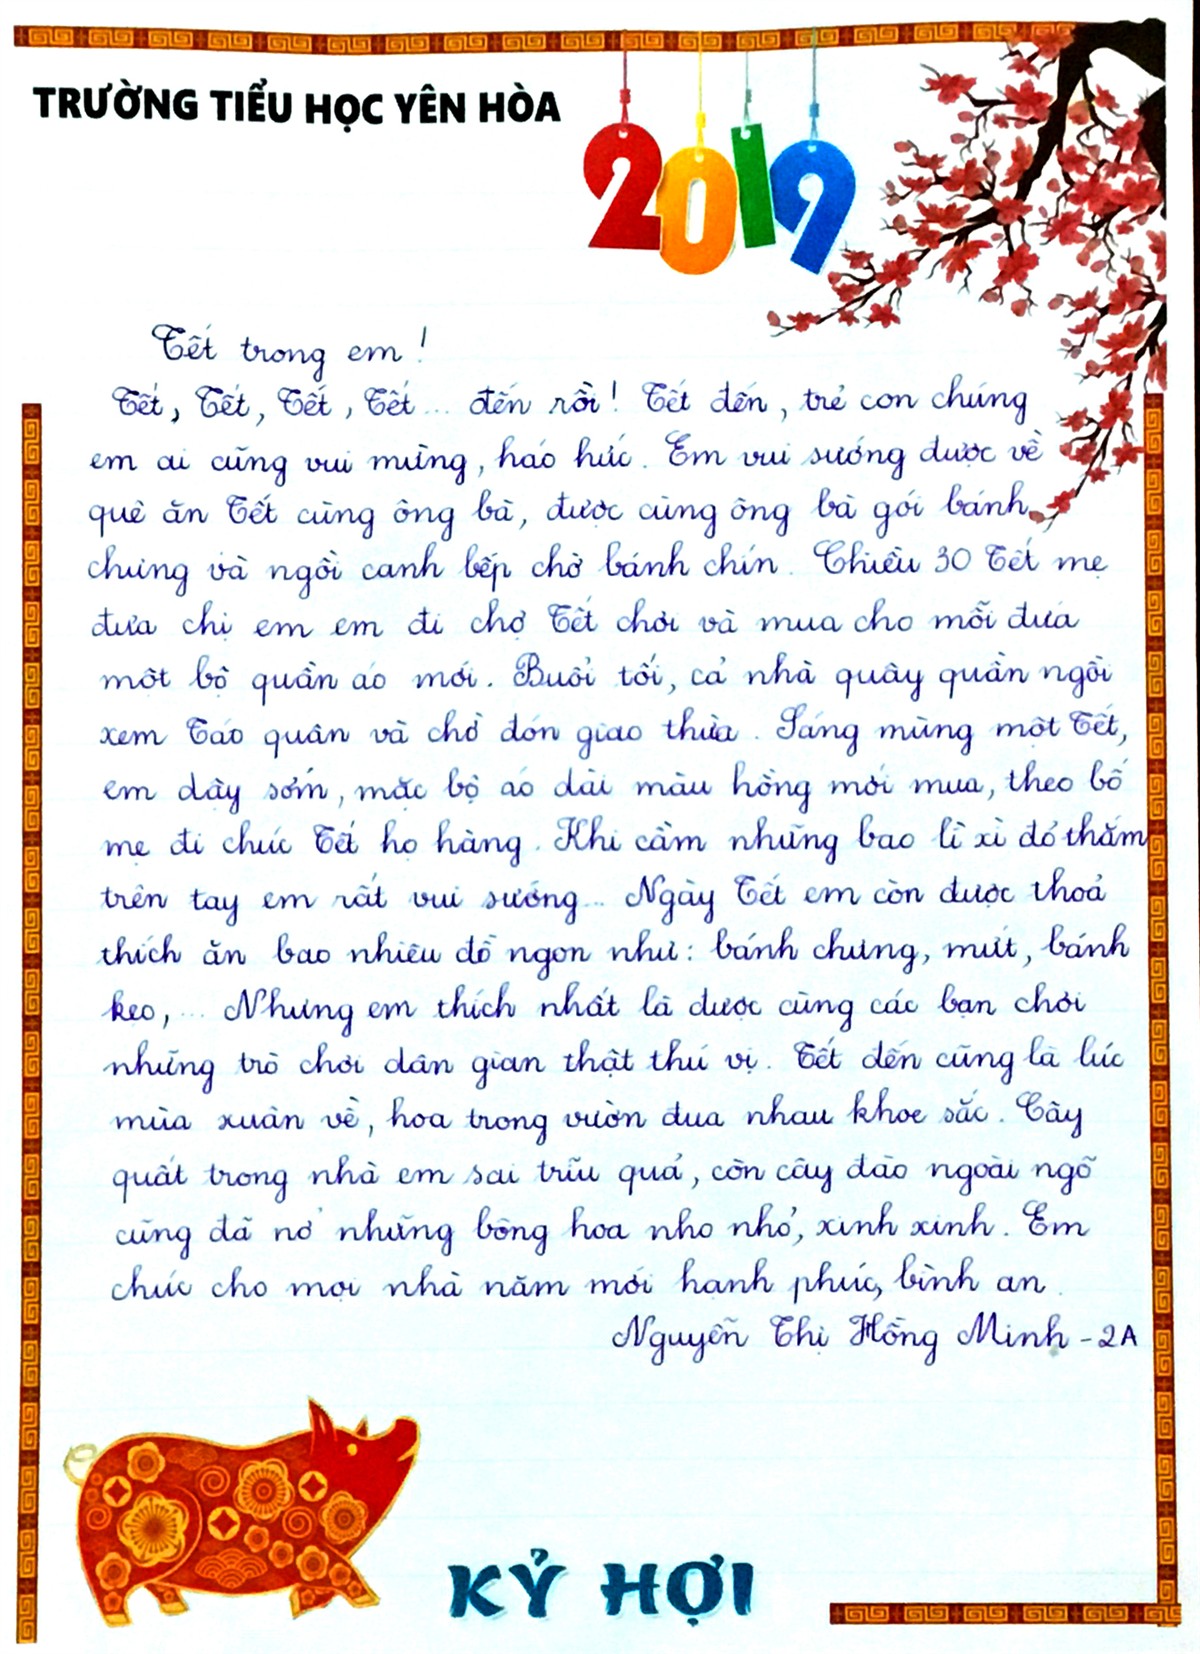 TRƯỜNG TIỂU HỌC YÊN HÒA
2019
Tết trong em !
Tết, Tết, Tết, Tết ... đến rồi ! Tết đến, trẻ con chúng
em ai cũng vui mừng, háo hức. Em vui sướng được về
quê ăn Tết cùng ông bà, được cùng ông bà gói bánh
chưng và ngồi canh bếp chờ bánh chín. Chiều 30 Tết mẹ
đưa chị em em đi chợ Tết chơi và mua cho mỗi đứa
một bộ quần áo mới. Buổi tối, cả nhà quây quần ngồi
xem Táo quân và chờ đón giao thừa. Sáng mùng một Tết,
em dậy sớm, mặc bộ áo dài màu hồng mới mua, theo bố
mẹ đi chúc Tết họ hàng. Khi cầm những bao lì xì đỏ thắm
trên tay em rất vui sướng... Ngày Tết em còn được thoả
thích ăn bao nhiêu đồ ngon như: bánh chưng, mứt, bánh
kẹo, ... Nhưng em thích nhất là được cùng các bạn chơi
những trò chơi dân gian thật thú vị. Tết đến cũng là lúc
mùa xuân về, hoa trong vườn đua nhau khoe sắc. Cây
quất trong nhà em sai trĩu quả, còn cây đào ngoài ngõ
cũng đã nở những bông hoa nho nhỏ, xinh xinh. Em
chúc cho mọi nhà năm mới hạnh phúc, bình an.
Nguyễn Thị Hồng Minh - 2A
KỶ HỢI